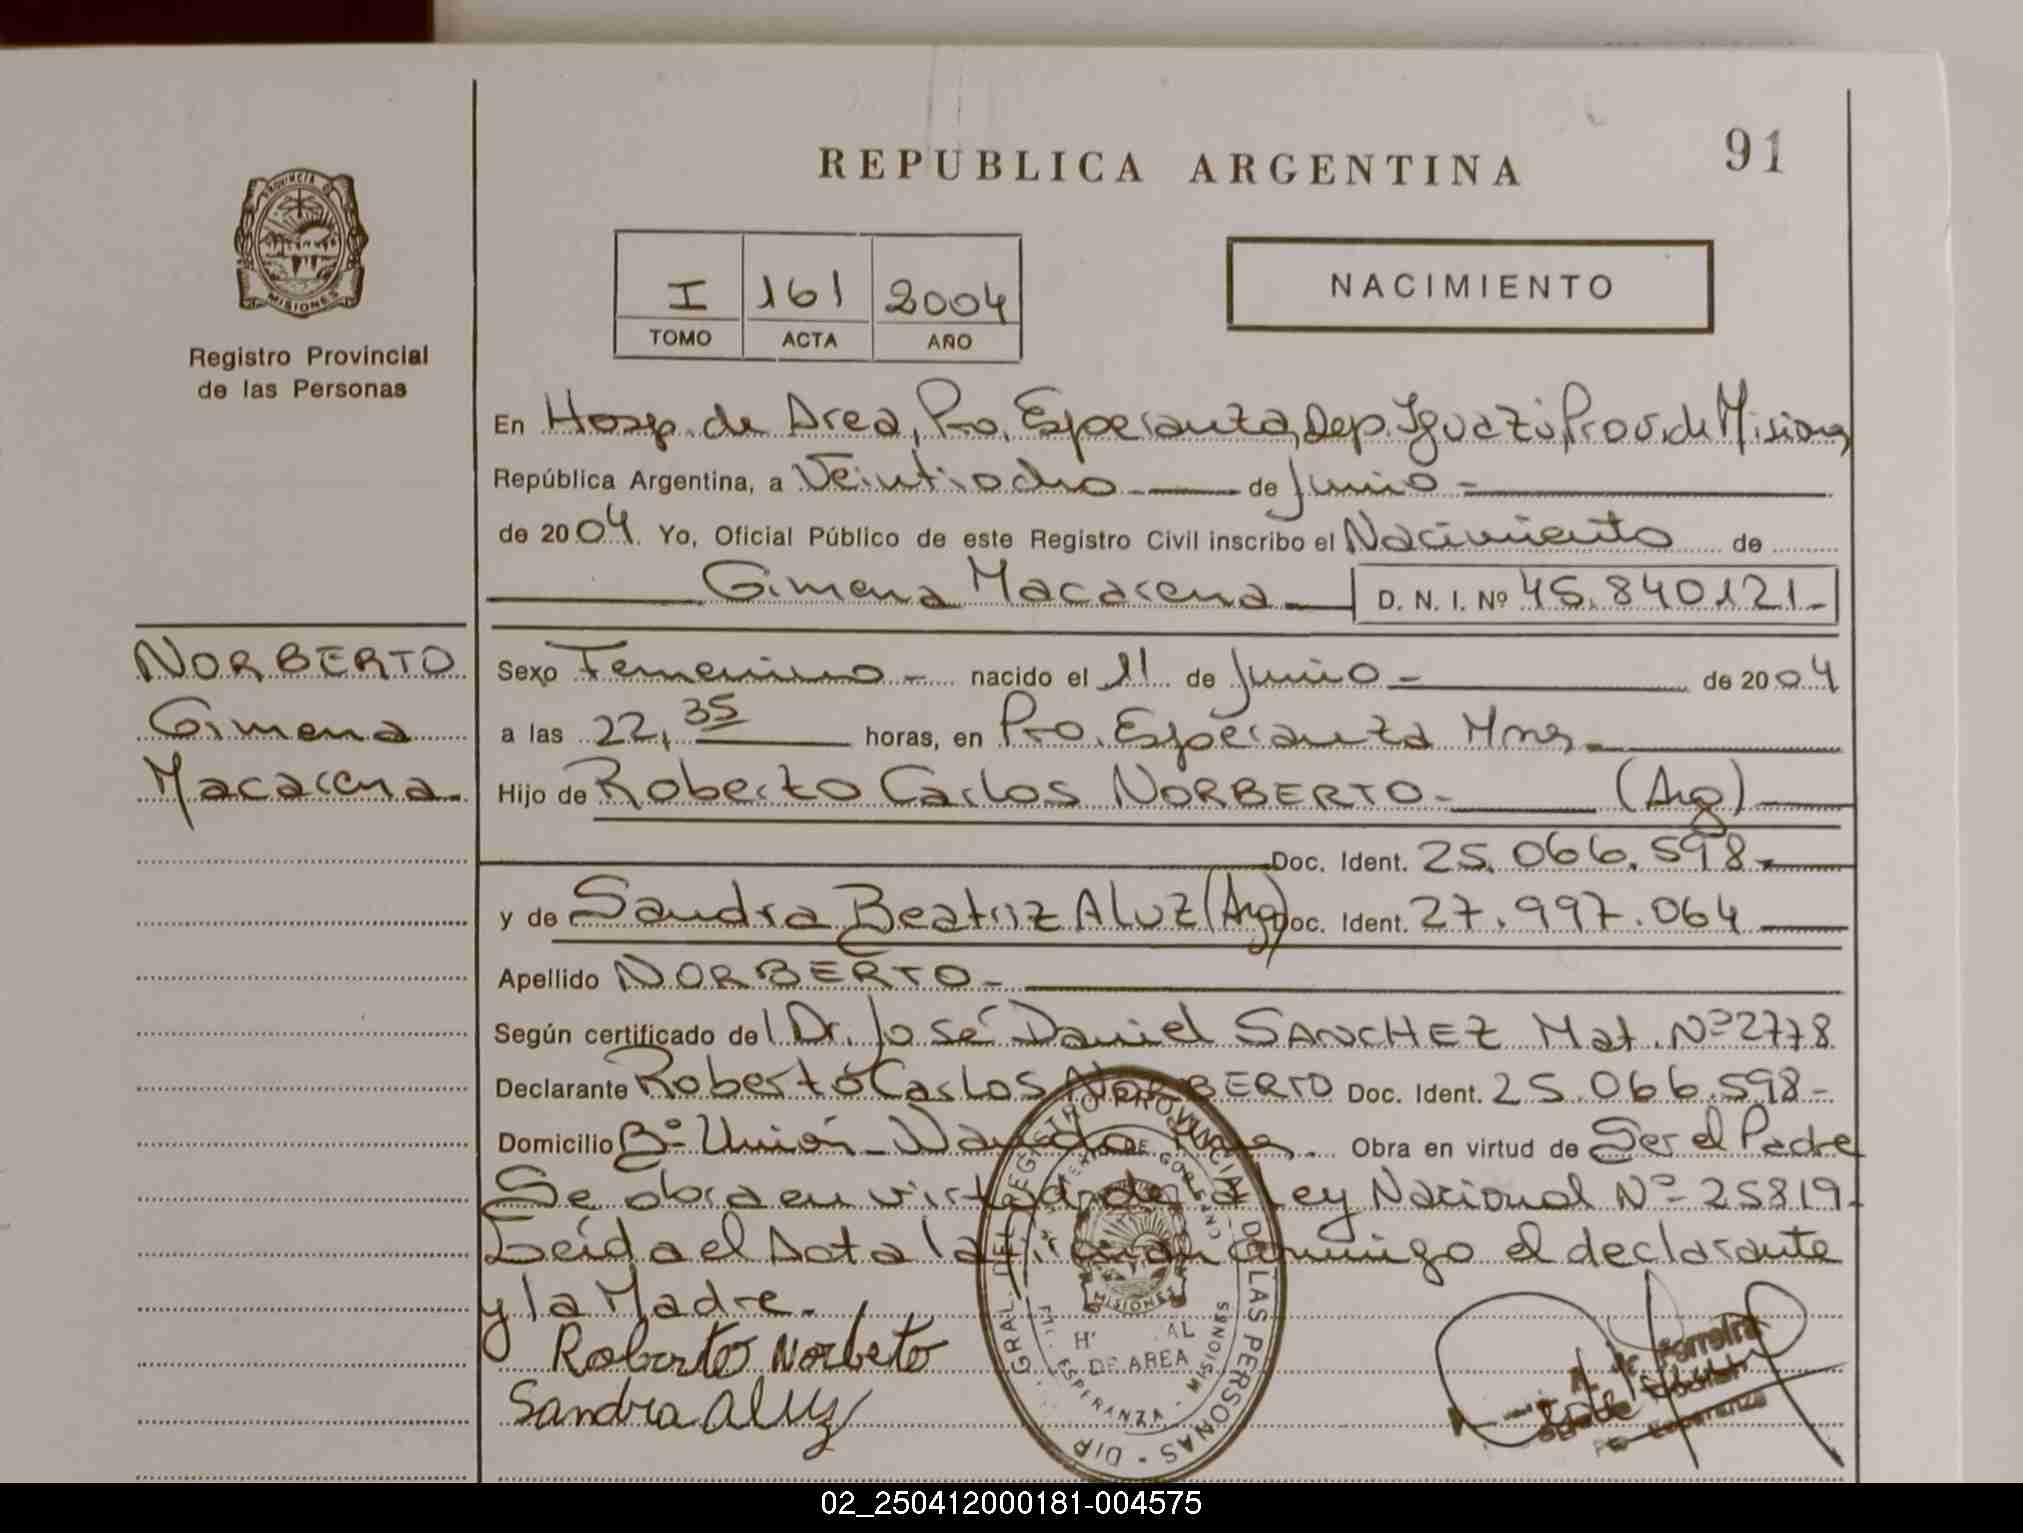 REPUBLICA ARGENTINA
91
PROVINCIA DE
MISIONES
Registro Provincial
de las Personas
I 161 2004
TOMO ACTA AÑO
NACIMIENTO
En Hosp. de Area, Pto. Esperanza, Dep. Iguazú, Prov. de Misiones,
República Argentina, a Veintiocho de Junio
de 2004. Yo, Oficial Público de este Registro Civil inscribo el Nacimiento de
Gimena Macarena D. N. I. Nº 45.840.121
NORBERTO
Gimena
Macarena
Sexo Femenino nacido el 11 de Junio de 2004
a las 22,35 horas, en Pto. Esperanza Mnes
Hijo de Roberto Carlos NORBERTO (Arg)
Doc. Ident. 25.066.598
y de Sandra Beatriz ALUZ (Arg) Doc. Ident. 27.997.064
Apellido NORBERTO
Según certificado del Dr. José Daniel SANCHEZ Mat. Nº 2778
Declarante Roberto Carlos NORBERTO Doc. Ident. 25.066.598
Domicilio Bº Unión Obra en virtud de Ser el Padre
Se obra en virtud de la Ley Nacional Nº 25819
Leída el Acta la firman conmigo el declarante
y la Madre.
Roberto Norbeto
Sandra Aluz
DIR GRAL. DEL REGISTRO PROVINCIAL DE LAS PERSONAS
MISIONES
DE AREA
ESPERANZA - MISIONES
Ferreira
Esperanza
02_250412000181-004575